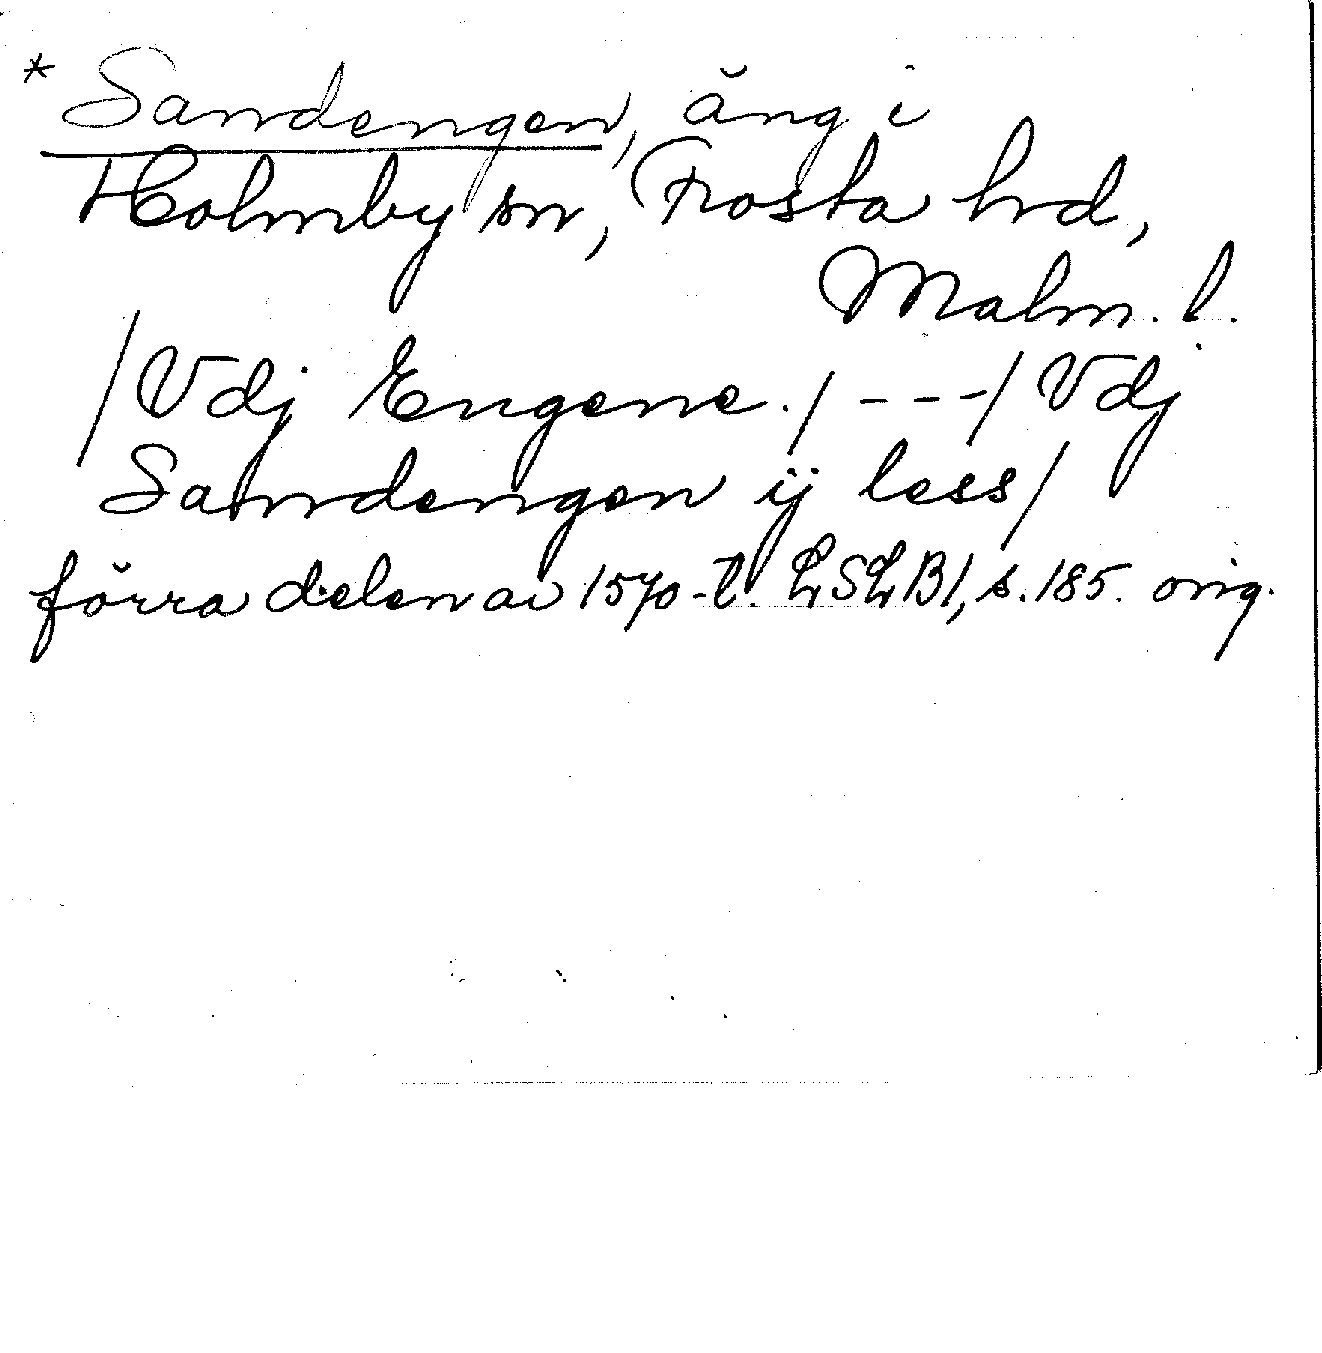 * Sandengen, äng i
Holmby sn, Frosta hrd,
Malm. l.
/Vdj Engene./ - - - / Vdj
Sandengen ij less/
förra delen av 1570-t. LSLB1, s. 185. orig.